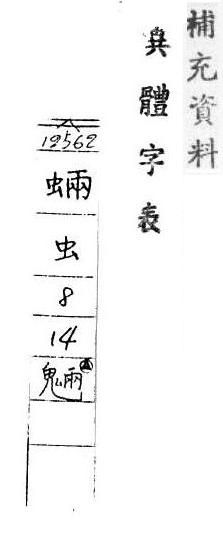 補充資料
異體字表
12562
蜽
虫
8
14
魎